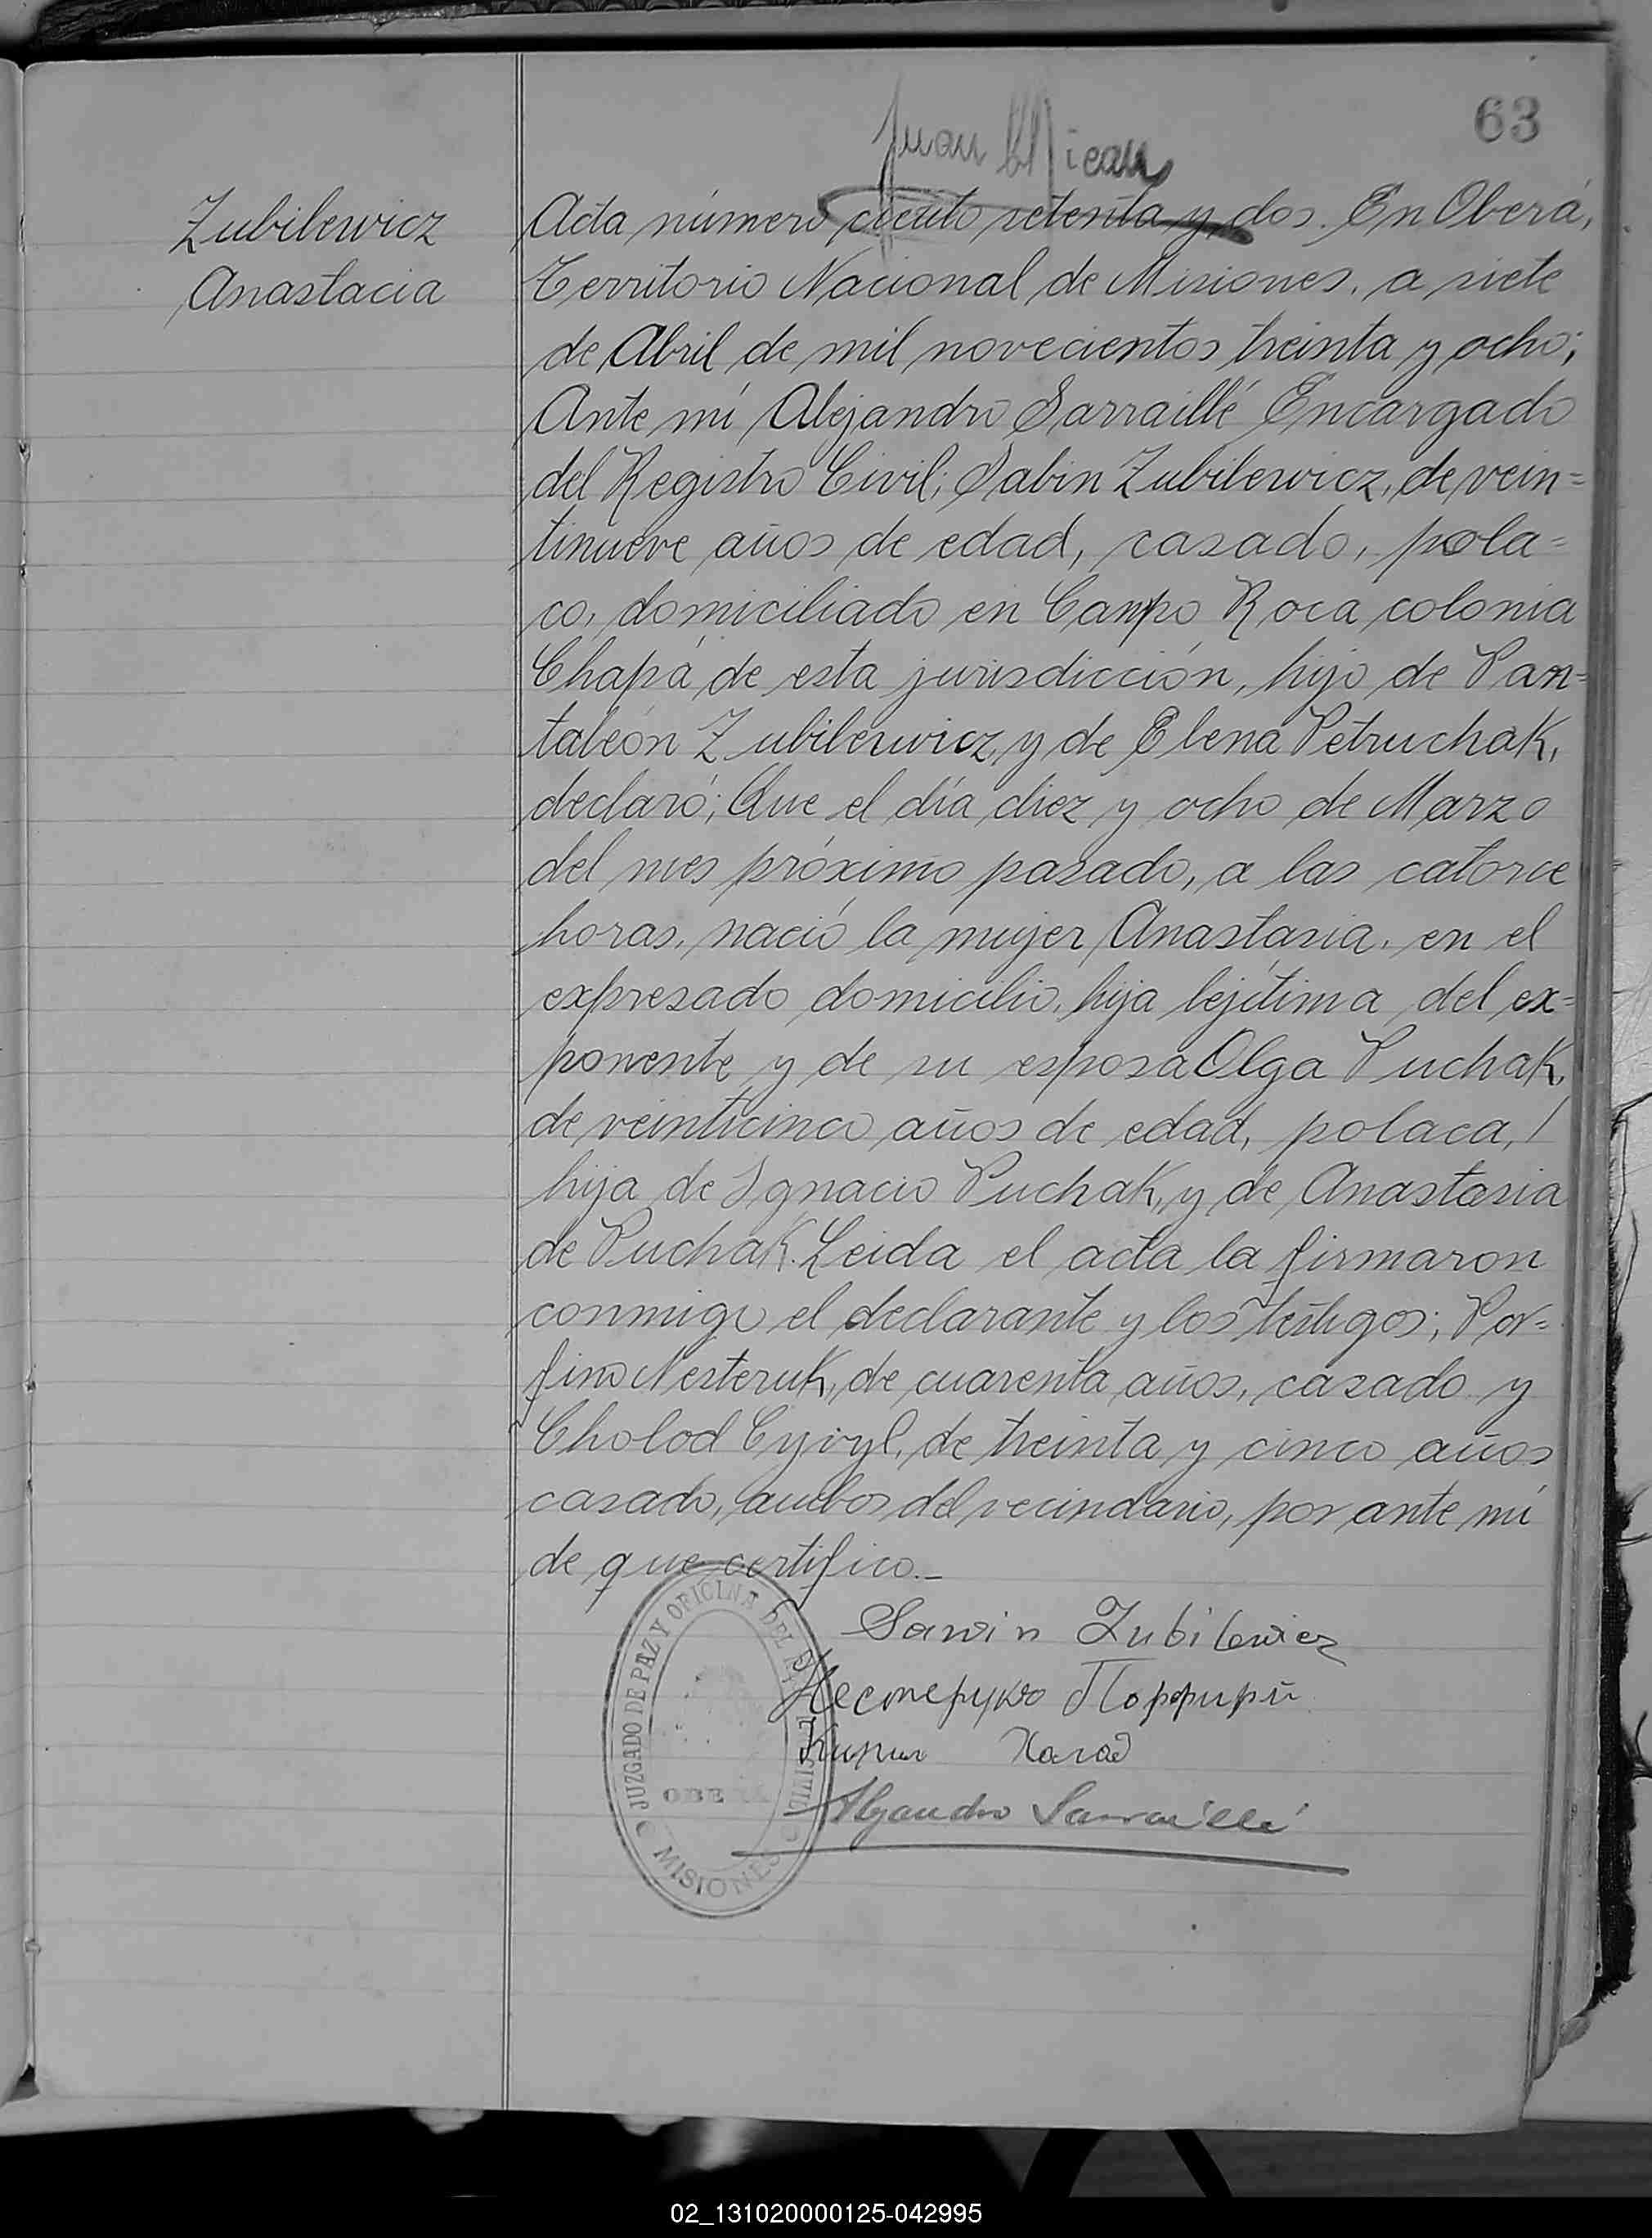 63
Juan
Zubilewicz
Anastacia
Acta número ciento setenta y dos. En Oberá,
Territorio Nacional de Misiones, a siete
de Abril de mil novecientos treinta y ocho;
Ante mí Alejandro Sarraillé Encargado
del Registro Civil; Sabin Zubilewicz, de vein=
tinueve años de edad, casado, pola=
co, domiciliado en Campo Roca colonia
Chapá de esta jurisdicción, hijo de Pan=
taleón Zubilewicz, y de Elena Petruchak,
declaró; Que el día diez y ocho de Marzo
del mes próximo pasado, a las catorce
horas, nació la mujer Anastasia, en el
expresado domicilio, hija lejítima del ex=
ponente y de su esposa Olga Puchak,
de veinticinco años de edad, polaca, /
hija de Ignacio Puchak, y de Anastasia
de Puchak. Leida el acta la firmaron
conmigo el declarante y los testigos; Por=
firio Nesteruk, de cuarenta años, casado y
Cholod Cyryl, de treinta y cinco años
casado, ambos del vecindario, por ante mí
de que certifico._
Sawin Zubilewicz
Нестерукъ Порфирй
Кирил Холод
Alejandro Sarraillé
JUZGADO DE PAZ Y OFICINA DEL CIVIL
OBERA
MISIONES
02_131020000125-042995